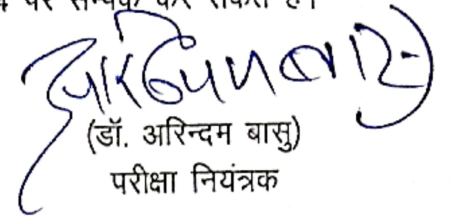 पर सम्पर्क कर सकते हैं।
(डॉ. अरिन्दम बासु)
परीक्षा नियंत्रक